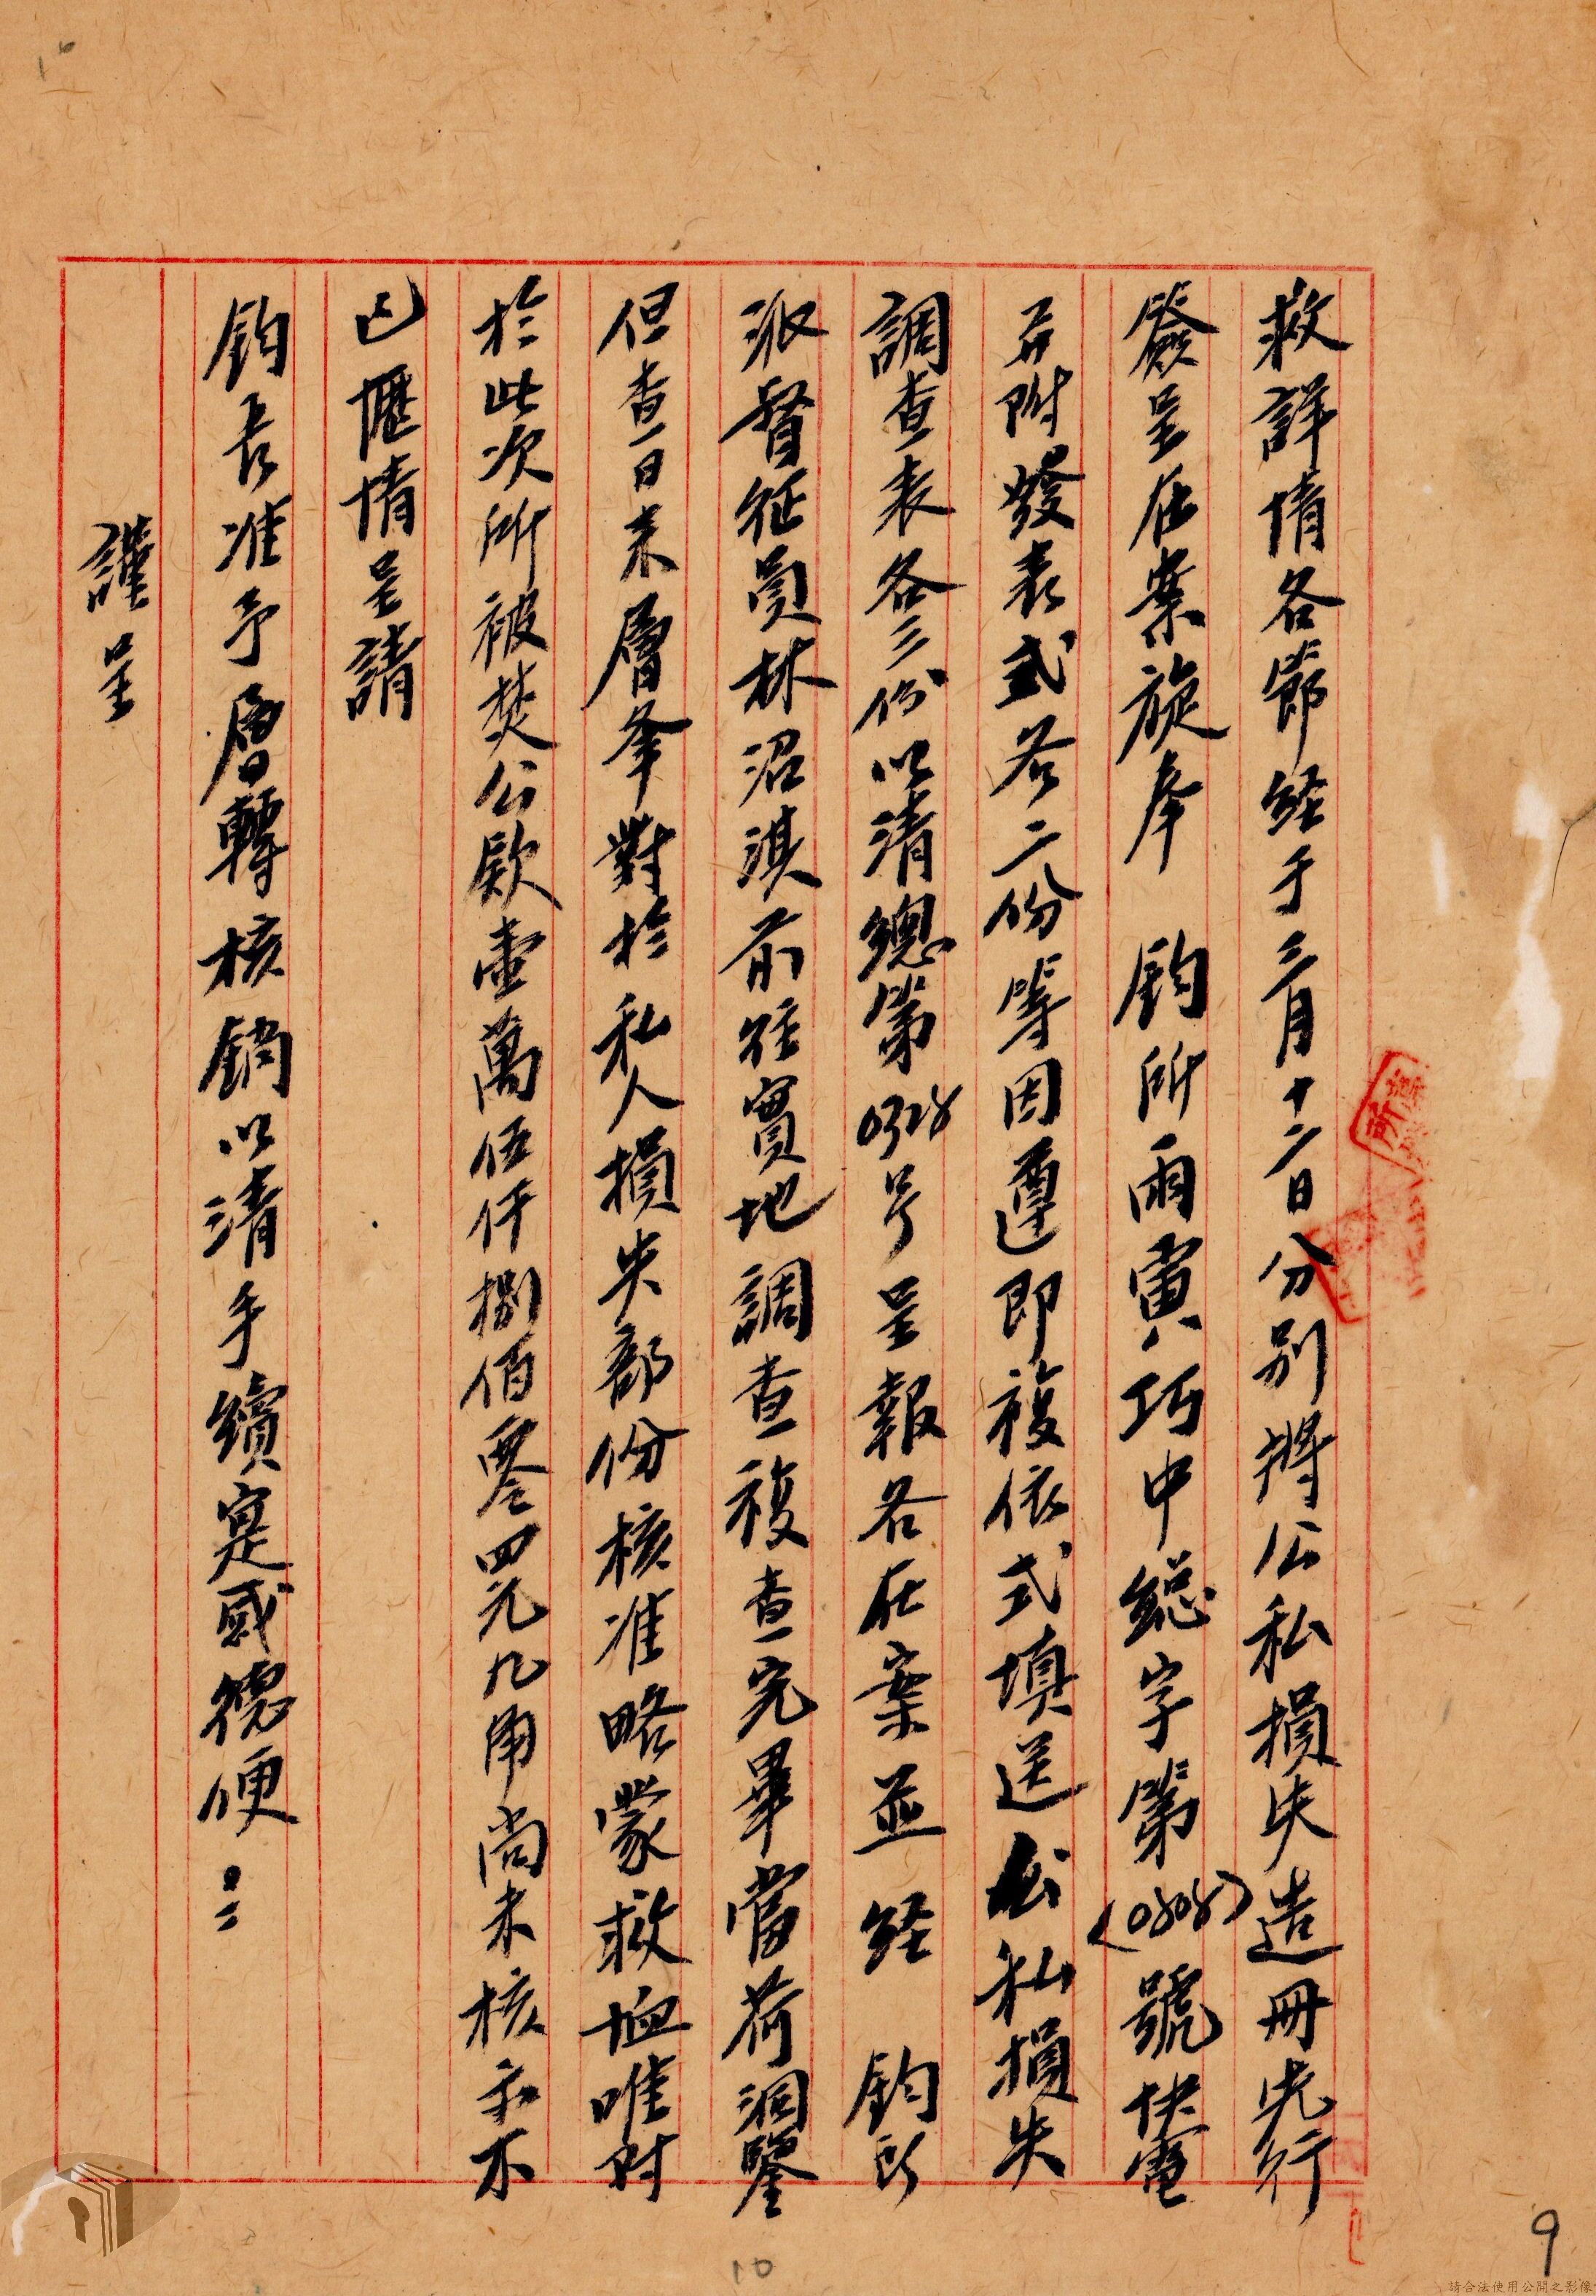 救詳情各節経于三月十二日分別將公私損失造冊先行
簽呈在案旋奉　鈞所雨寅巧中総字第(0808)號快電
并附發表式各二份等因遵即複依式填送公私損失
調查表各三份以清總第0328号呈報各在案並経　鈞所
派督征員林沼淇前往實地調查複查完畢當荷洞鑒
但查日來層奉對於私人損失部份核准略蒙救恤唯對
於此次所被焚公欵壹萬伍仟捌佰零四元九角尚未核示不
已歷情呈請
鈞長准予層轉核銷以清手續寔感德便
謹呈
9
10
請合法使用公開之影像